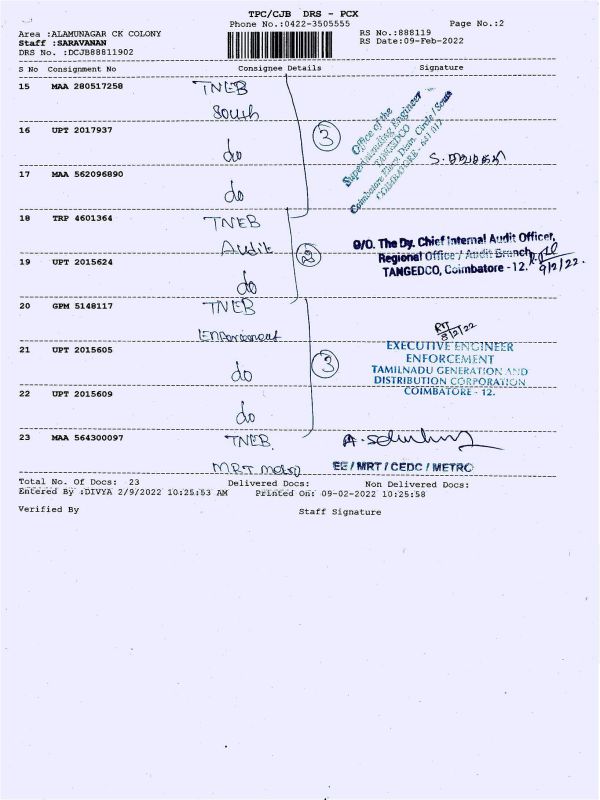 TPC/CJB DRS - PCX
Phone No.:0422-3505555 Page No.:2
Area :ALAMUNAGAR CK COLONY RS No.:888119
Staff :SARAVANAN RS Date:09-Feb-2022
DRS No. :DCJB88811902
S No Consignment No Consignee Details Signature
15 MAA 280517258 TNEB
South
16 UPT 2017937 do
3
Office of the
Superintending Engineer
TANGEDCO
Coimbatore Elecy. Dism. Circle / South
COIMBATORE - 641 012
17 MAA 562096890 do
18 TRP 4601364 TNEB
Audit
2
O/O. The Dy. Chief Internal Audit Officer,
Regional Office / Audit Branch,
TANGEDCO, Coimbatore - 12. 9/2/22.
19 UPT 2015624 do
20 GPM 5148117 TNEB
8/2/22
21 UPT 2015605 do
3
EXECUTIVE ENGINEER
ENFORCEMENT
TAMILNADU GENERATION AND
DISTRIBUTION CORPORATION
COIMBATORE - 12.
22 UPT 2015609 do
23 MAA 564300097 TNEB
MRT metro
EE / MRT / CEDC / METRO
Total No. Of Docs: 23 Delivered Docs: Non Delivered Docs:
Entered By :DIVYA 2/9/2022 10:25:53 AM Printed On: 09-02-2022 10:25:58
Verified By Staff Signature